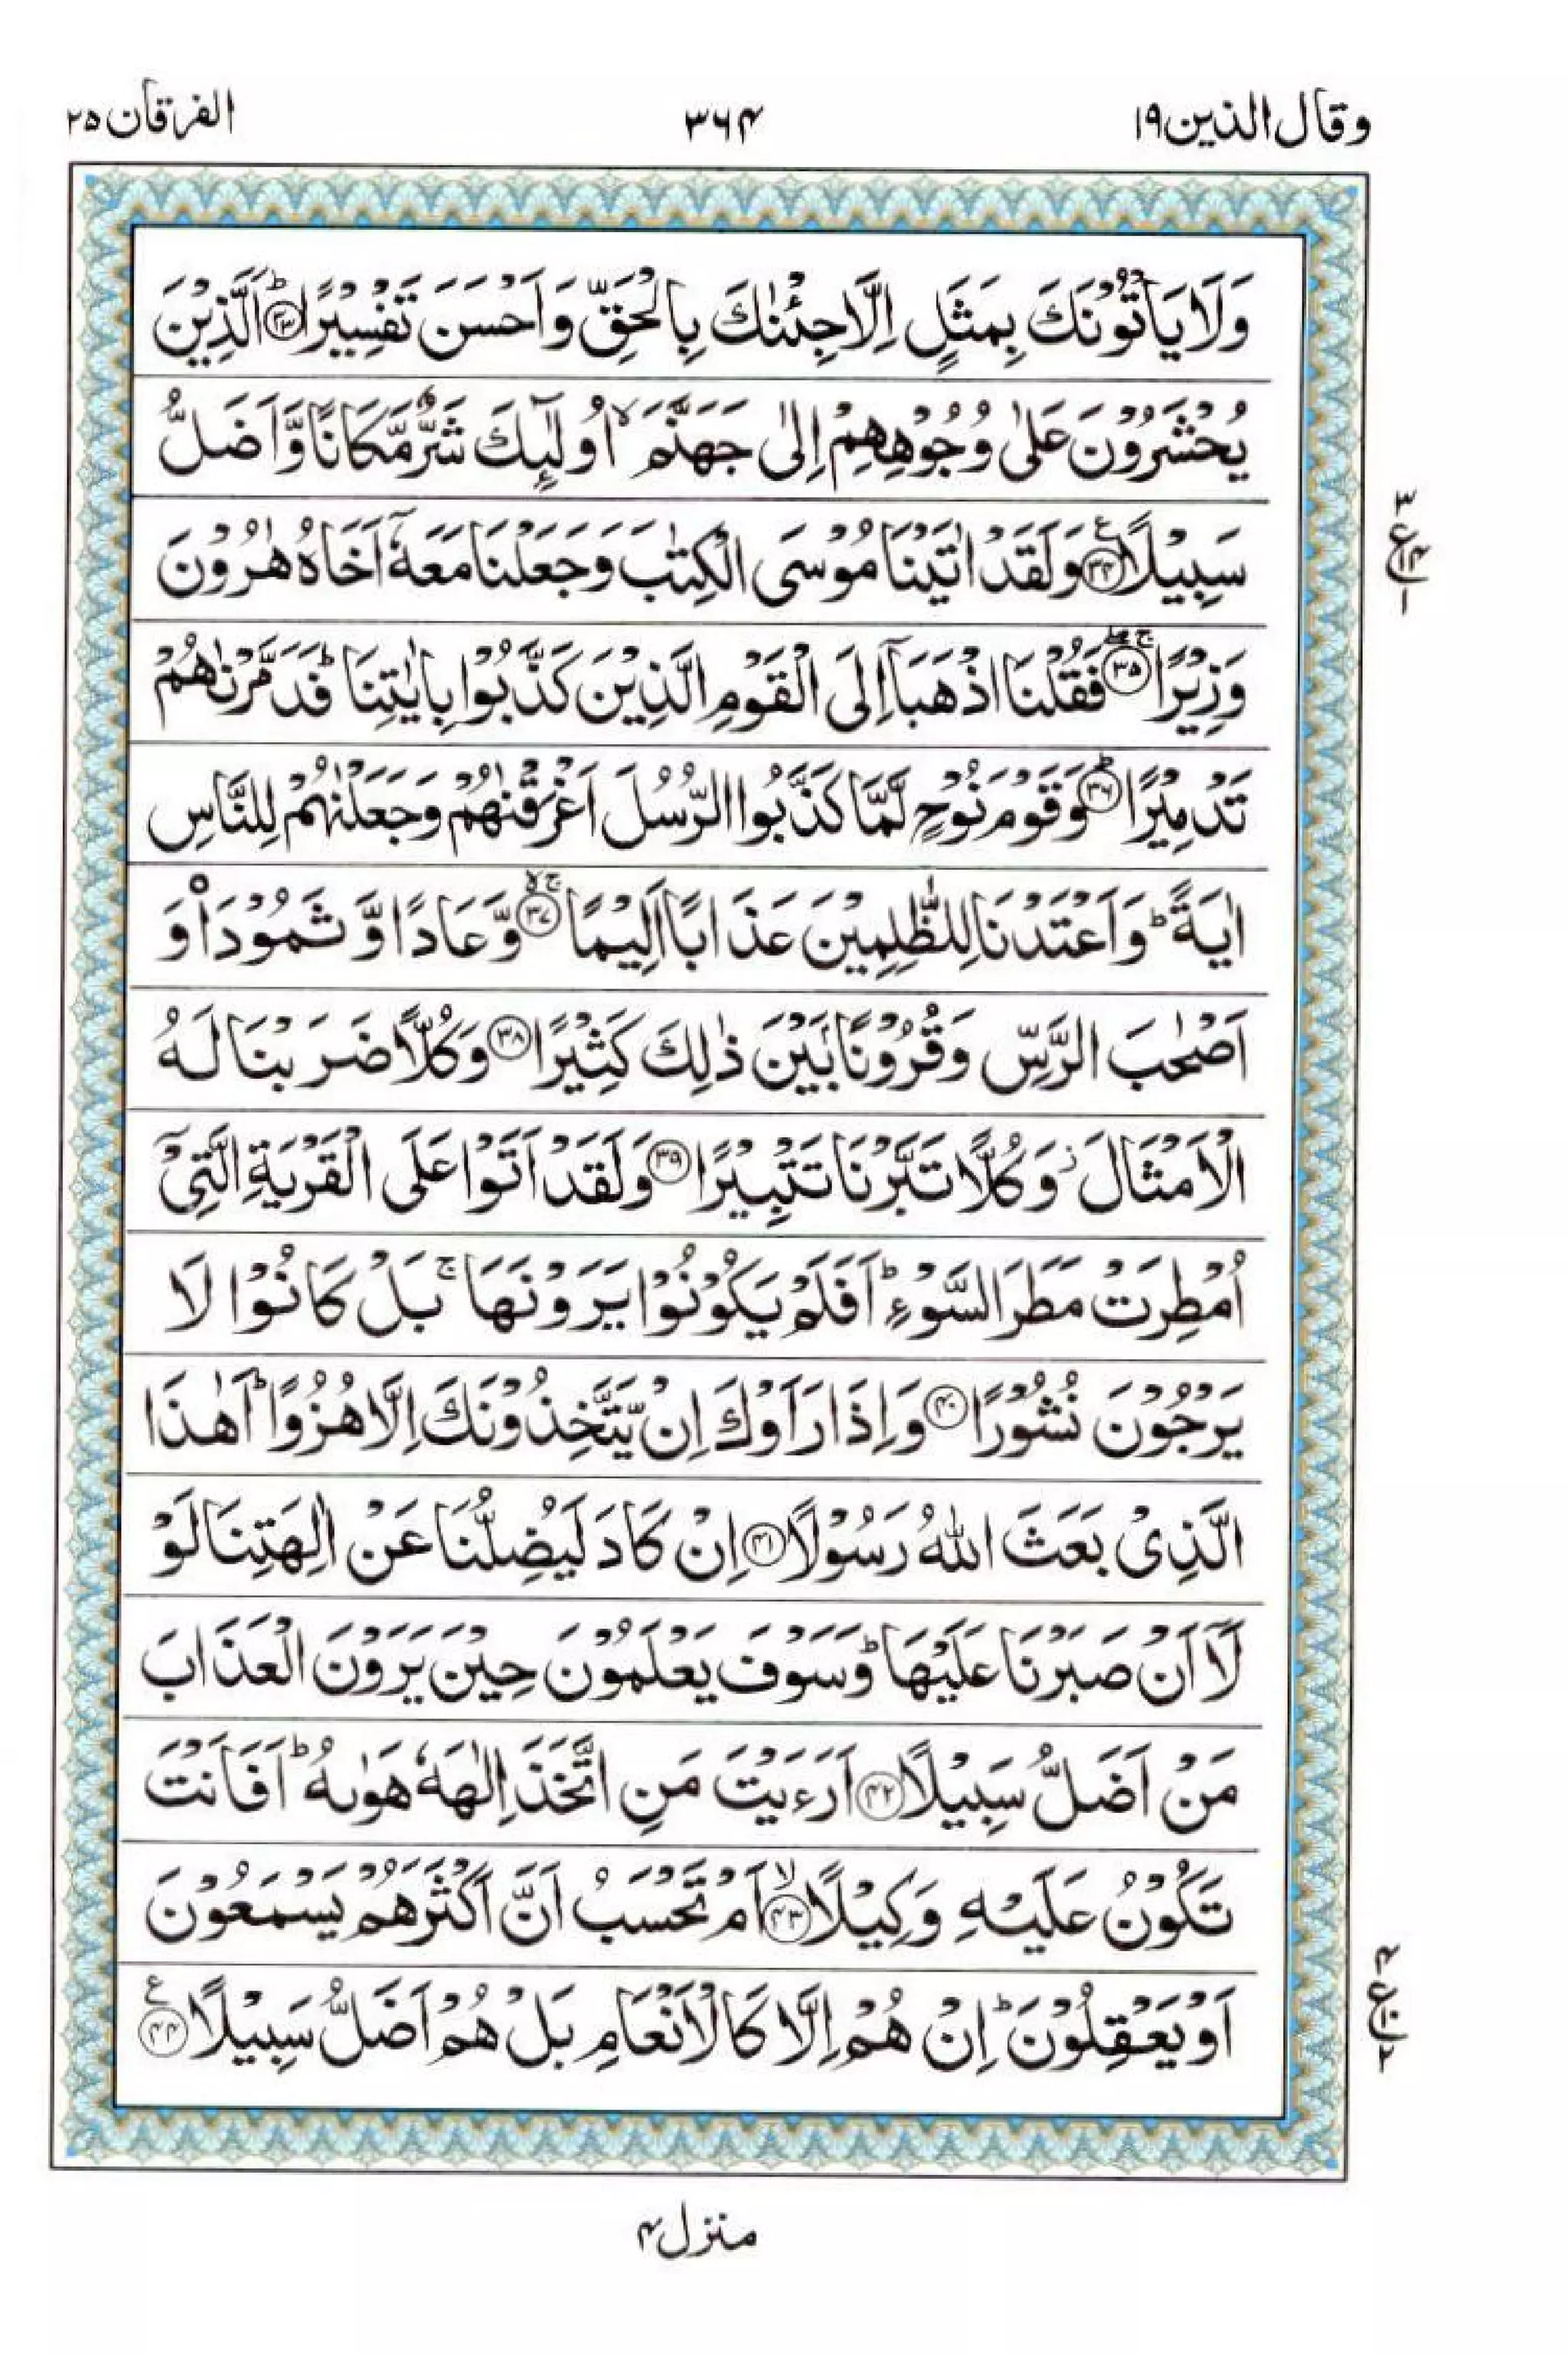 وقال الذين ۱۹ ۳۶۴ الفرقان ۲۵
وَلَا يَاْتُوْنَكَ بِمَثَلٍ اِلَّا جِئْنٰكَ بِالْحَقِّ وَاَحْسَنَ تَفْسِيْرًا ؕ﴿۳۳﴾ اَلَّذِيْنَ
يُحْشَرُوْنَ عَلٰى وُجُوْهِهِمْ اِلٰى جَهَنَّمَ ۙ اُولٰٓئِكَ شَرٌّ مَّكَانًا وَّاَضَلُّ
سَبِيْلًا ﴿۳۴﴾ؑ وَلَقَدْ اٰتَيْنَا مُوْسَى الْكِتٰبَ وَجَعَلْنَا مَعَهٗۤ اَخَاهُ هٰرُوْنَ
وَزِيْرًا ﴿۳۵﴾ۚۖ فَقُلْنَا اذْهَبَاۤ اِلَى الْقَوْمِ الَّذِيْنَ كَذَّبُوْا بِاٰيٰتِنَا ؕ فَدَمَّرْنٰهُمْ
تَدْمِيْرًا ؕ﴿۳۶﴾ وَقَوْمَ نُوْحٍ لَّمَّا كَذَّبُوا الرُّسُلَ اَغْرَقْنٰهُمْ وَجَعَلْنٰهُمْ لِلنَّاسِ
اٰيَةً ؕ وَاَعْتَدْنَا لِلظّٰلِمِيْنَ عَذَابًا اَلِيْمًا ﴿۳۷﴾ۚۙ وَّعَادًا وَّ ثَمُوْدَا۟ وَ
اَصْحٰبَ الرَّسِّ وَقُرُوْنًۢا بَيْنَ ذٰلِكَ كَثِيْرًا ﴿۳۸﴾ وَكُلًّا ضَرَبْنَا لَهُ
الْاَمْثَالَ ؗ وَكُلًّا تَبَّرْنَا تَتْبِيْرًا ﴿۳۹﴾ وَلَقَدْ اَتَوْا عَلَى الْقَرْيَةِ الَّتِيْۤ
اُمْطِرَتْ مَطَرَ السَّوْءِ ؕ اَفَلَمْ يَكُوْنُوْا يَرَوْنَهَا ۚ بَلْ كَانُوْا لَا
يَرْجُوْنَ نُشُوْرًا ﴿۴۰﴾ وَاِذَا رَاَوْكَ اِنْ يَّتَّخِذُوْنَكَ اِلَّا هُزُوًا ؕ اَهٰذَا
الَّذِيْ بَعَثَ اللّٰهُ رَسُوْلًا ﴿۴۱﴾ اِنْ كَادَ لَيُضِلُّنَا عَنْ اٰلِهَتِنَا لَوْ
لَاۤ اَنْ صَبَرْنَا عَلَيْهَا ؕ وَسَوْفَ يَعْلَمُوْنَ حِيْنَ يَرَوْنَ الْعَذَابَ
مَنْ اَضَلُّ سَبِيْلًا ﴿۴۲﴾ اَرَءَيْتَ مَنِ اتَّخَذَ اِلٰهَهٗ هَوٰىهُ ؕ اَفَاَنْتَ
تَكُوْنُ عَلَيْهِ وَكِيْلًا ۙ﴿۴۳﴾ اَمْ تَحْسَبُ اَنَّ اَكْثَرَهُمْ يَسْمَعُوْنَ
اَوْ يَعْقِلُوْنَ ؕ اِنْ هُمْ اِلَّا كَالْاَنْعَامِ بَلْ هُمْ اَضَلُّ سَبِيْلًا ﴿۴۴﴾ؑ
منزل ۴